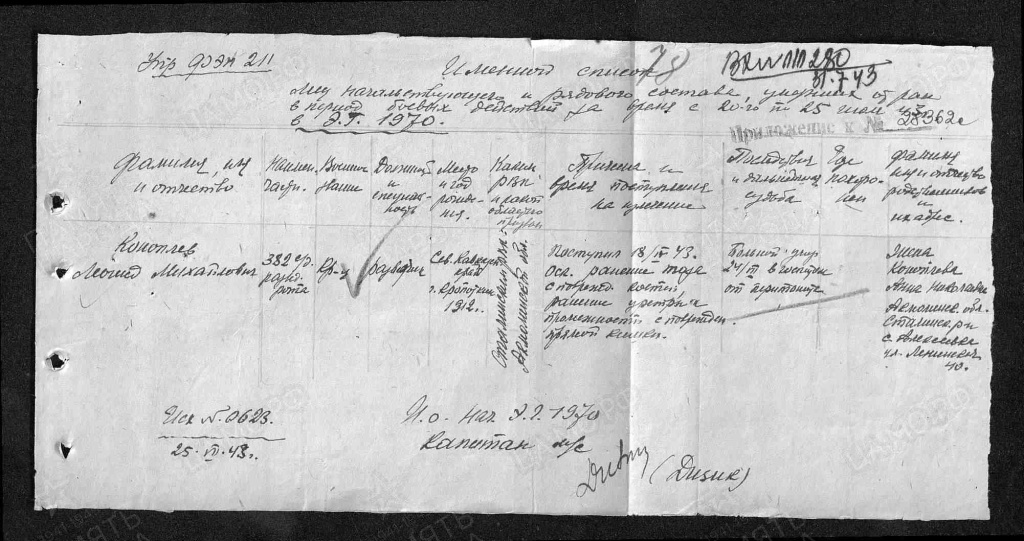 Укр ФЭП 211
78
ВХ № 280
31.7.43
Именной список
лиц начальствующего и рядового состава, умерших от ран
в период боевых действий за время с 20-го по 25 июля 43 г.
в Э.Г. 1970.
Приложение к № 28362с
Фамилия, имя
и отчество
Наимен.
части.
Воинск.
звание
Должность
и
специаль-
ность
Место
и год
рожде-
ния.
Каким
РВК
и какой
области
призван
Причина и
время поступления
на излечение
Последствия
и дальнейшая
судьба
Где
похоро-
нен
Фамилия
имя и отчество
родственников
и
их адрес.
Коноплев
Леонид Михайлович
382 ср.
развед
рота
Кр-ц
разведчик
Сев. Кавказск
край
г. Кропоткин
1912 г.
Сталинским РВК.
Акмолинской обл.
Поступил 18/VII 43.
осл. ранение таза
с поврежд. костей,
ранение уретры и
промежности с поврежден.
прямой кишки.
Больной умер
24/VII в госпитале
от перитонита
Жена
Коноплева
Анна Николаевна
Акмолинск. обл.
Сталинск. р-н
с. Алексеевка
ул. Ленинская
40.
Исх №. 0623.
25. VII. 43 г.
И. о. нач. Э.Г. 1970
Капитан м/с
(Дизик)